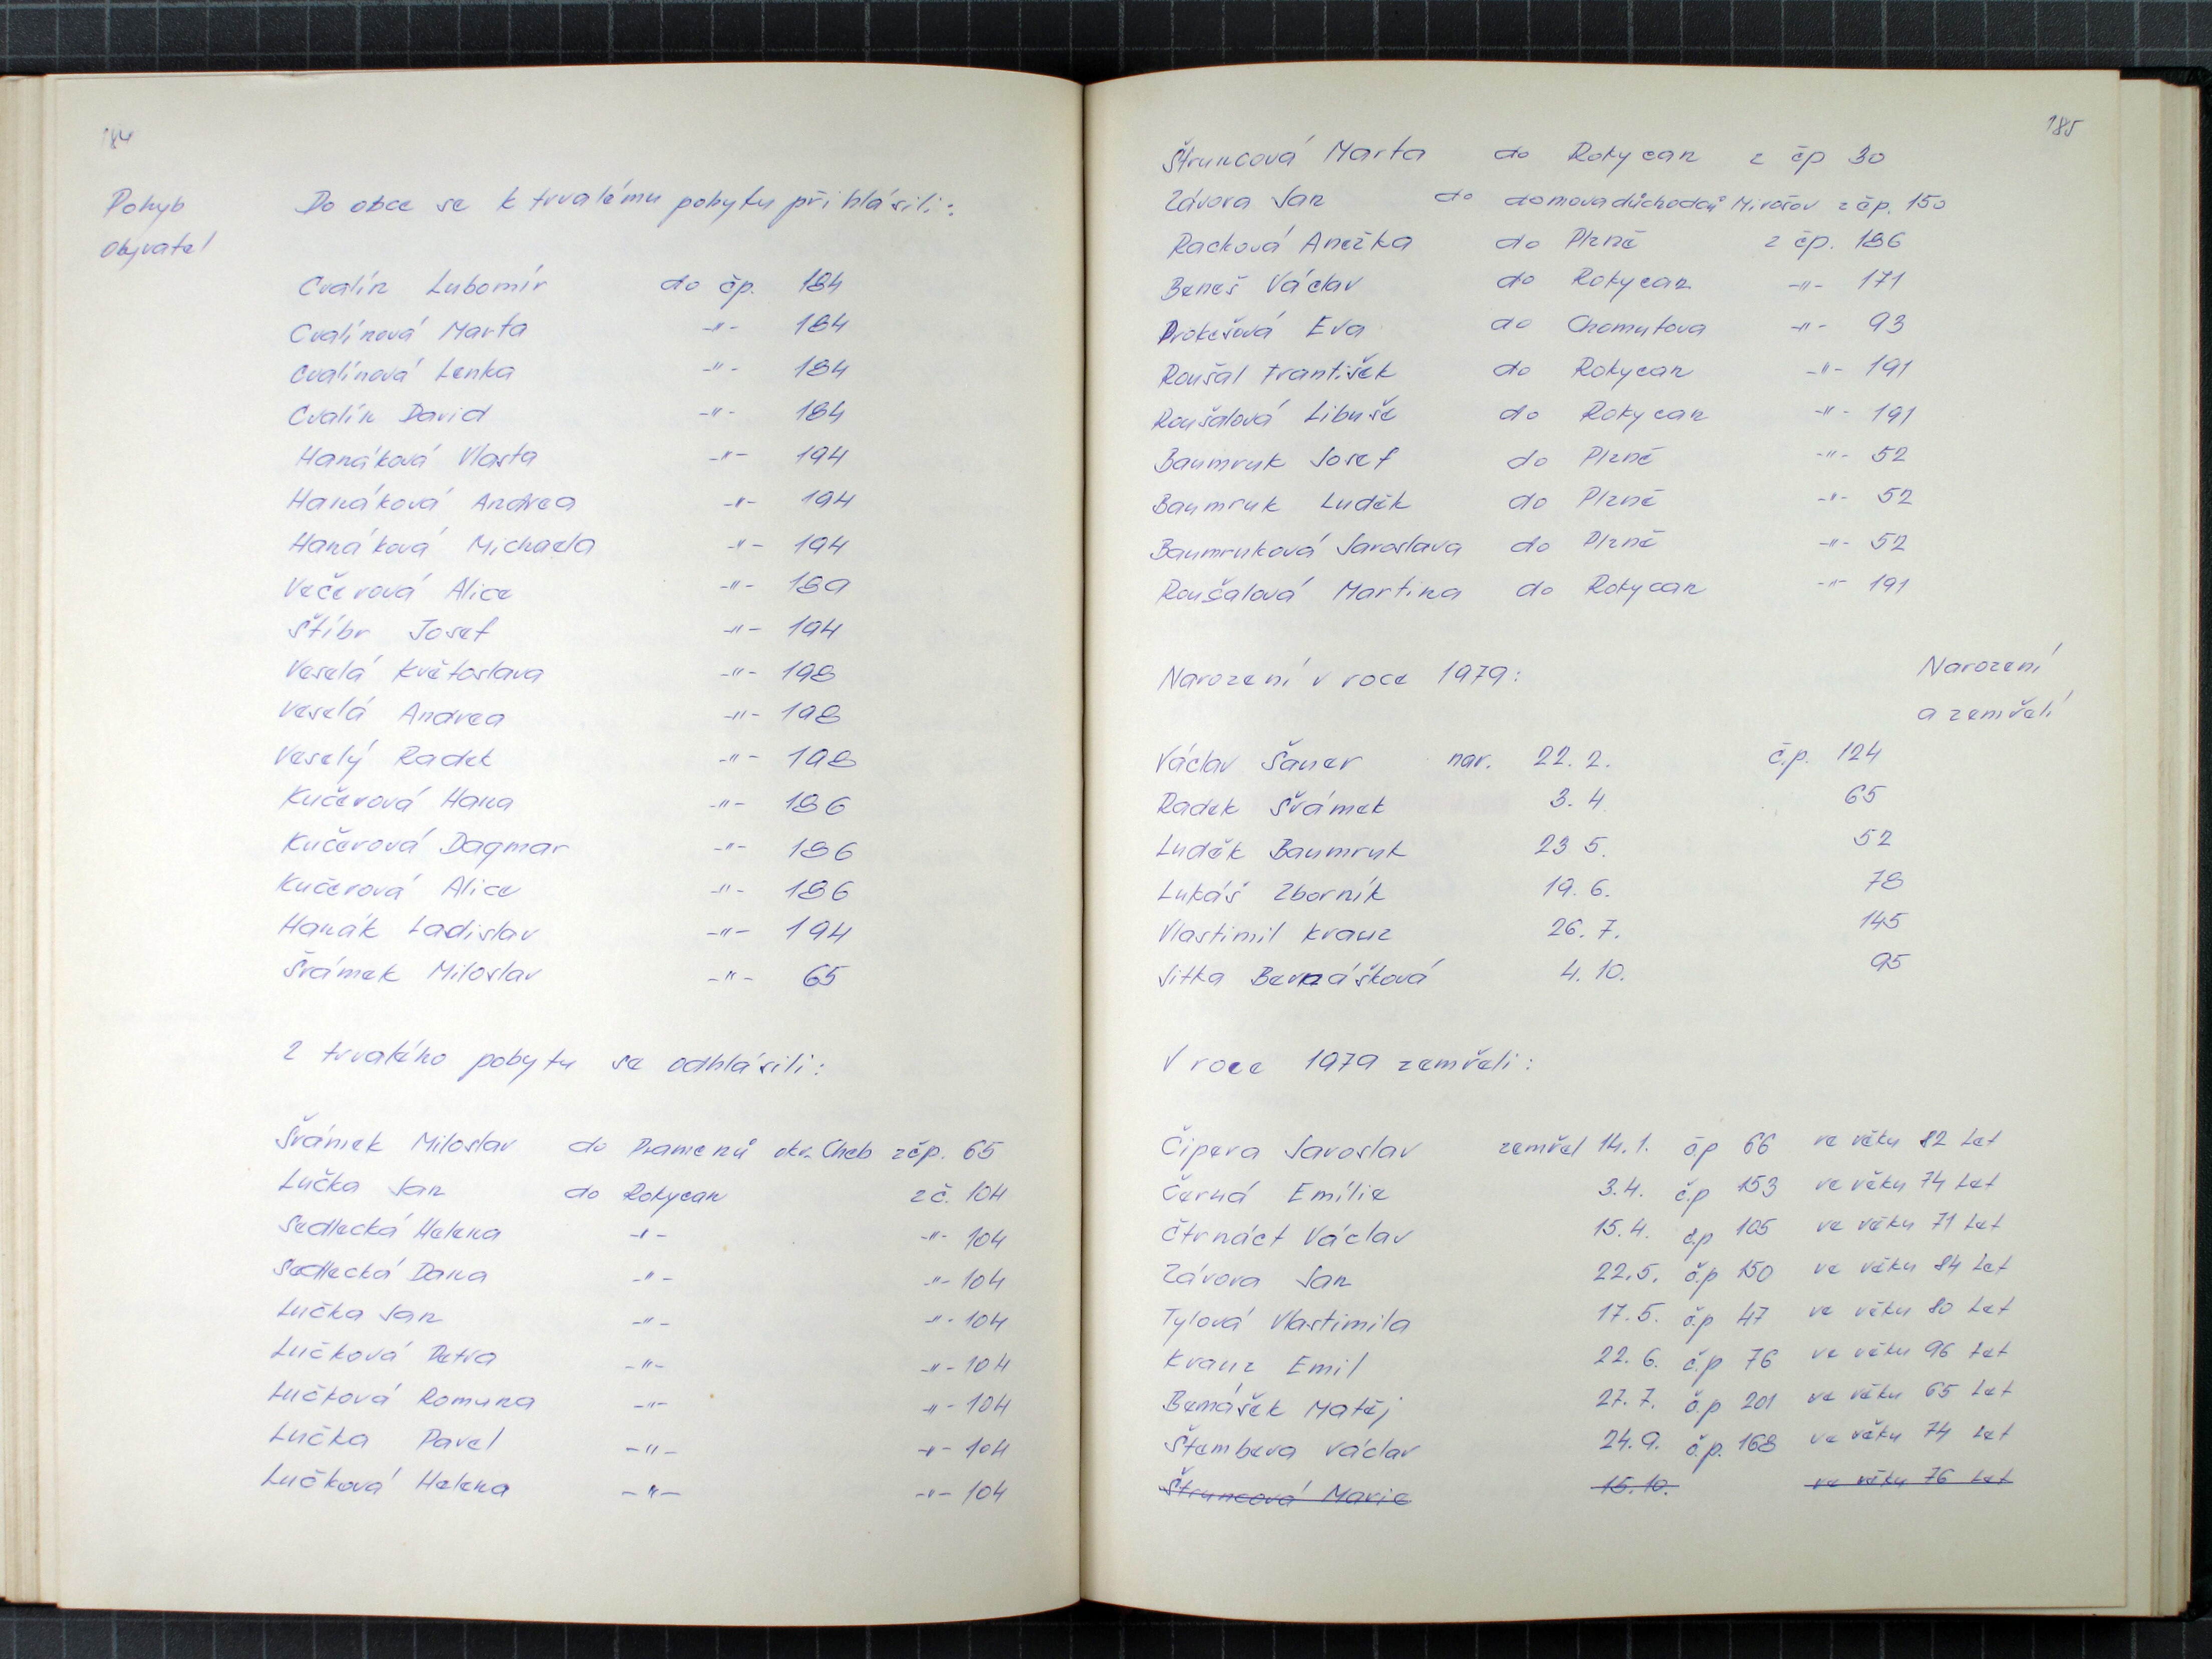 184
Pohyb
obyvatel
Do obce se k trvalému pobytu přihlásili:
Cvalín Lubomír do čp. 184
Cvalínová Marta -"- 184
Cvalínová Lenka -"- 184
Cvalín David -"- 184
Hanáková Vlasta -"- 194
Hanáková Andrea -"- 194
Hanáková Michaela -"- 194
Večerová Alice -"- 189
Štíbr Josef -"- 194
Veselá Květoslava -"- 198
Veselá Andrea -"- 198
Veselý Radek -"- 198
Kučerová Hana -"- 186
Kučerová Dagmar -"- 186
Kučerová Alice -"- 186
Hanák Ladislav -"- 194
Šrámek Miloslav -"- 65
Z trvalého pobytu se odhlásili:
Šrámek Miloslav do Pramenů okr. Cheb z čp. 65
Lučka Jan do Rokycan z č. 104
Sedlecká Helena -"- -"- 104
Sedlecká Dana -"- -"- 104
Lučka Jan -"- -"- 104
Lučková Petra -"- -"- 104
Lučková Romana -"- -"- 104
Lučka Pavel -"- -"- 104
Lučková Helena -"- -"- 104
185
Štruncová Marta do Rokycan z čp 30
Závora Jan do domova důchodců Mirošov z čp. 150
Racková Anežka do Plzně z čp. 186
Beneš Václav do Rokycan -"- 171
Prokešová Eva do Chomutova -"- 93
Roušal František do Rokycan -"- 191
Roušalová Libuše do Rokycan -"- 191
Baumruk Josef do Plzně -"- 52
Baumruk Luděk do Plzně -"- 52
Baumruková Jaroslava do Plzně -"- 52
Roušalová Martina do Rokycan -"- 191
Narození
a zemřelí
Narození v roce 1979:
Václav Šauer nar. 22. 2. č.p. 124
Radek Šrámek 3. 4. 65
Luděk Baumruk 23 5. 52
Lukáš Zborník 19. 6. 78
Vlastimil Krauz 26. 7. 145
Jitka Bernášková 4. 10. 95
V roce 1979 zemřeli:
Čipera Jaroslav zemřel 14. 1. čp 66 ve věku 82 let
Černá Emílie 3. 4. č.p 153 ve věku 74 let
Čtrnáct Václav 15. 4. čp 105 ve věku 71 let
Závora Jan 22. 5. č.p 150 ve věku 84 let
Tylová Vlastimila 17. 5. č.p 47 ve věku 80 let
Krauz Emil 22. 6. č.p 76 ve věku 96 let
Bernášek Matěj 27. 7. č.p 201 ve věku 65 let
Štembera Václav 24. 9. č.p. 168 ve věku 74 let
Štruncová Marie 15. 10. ve věku 76 let